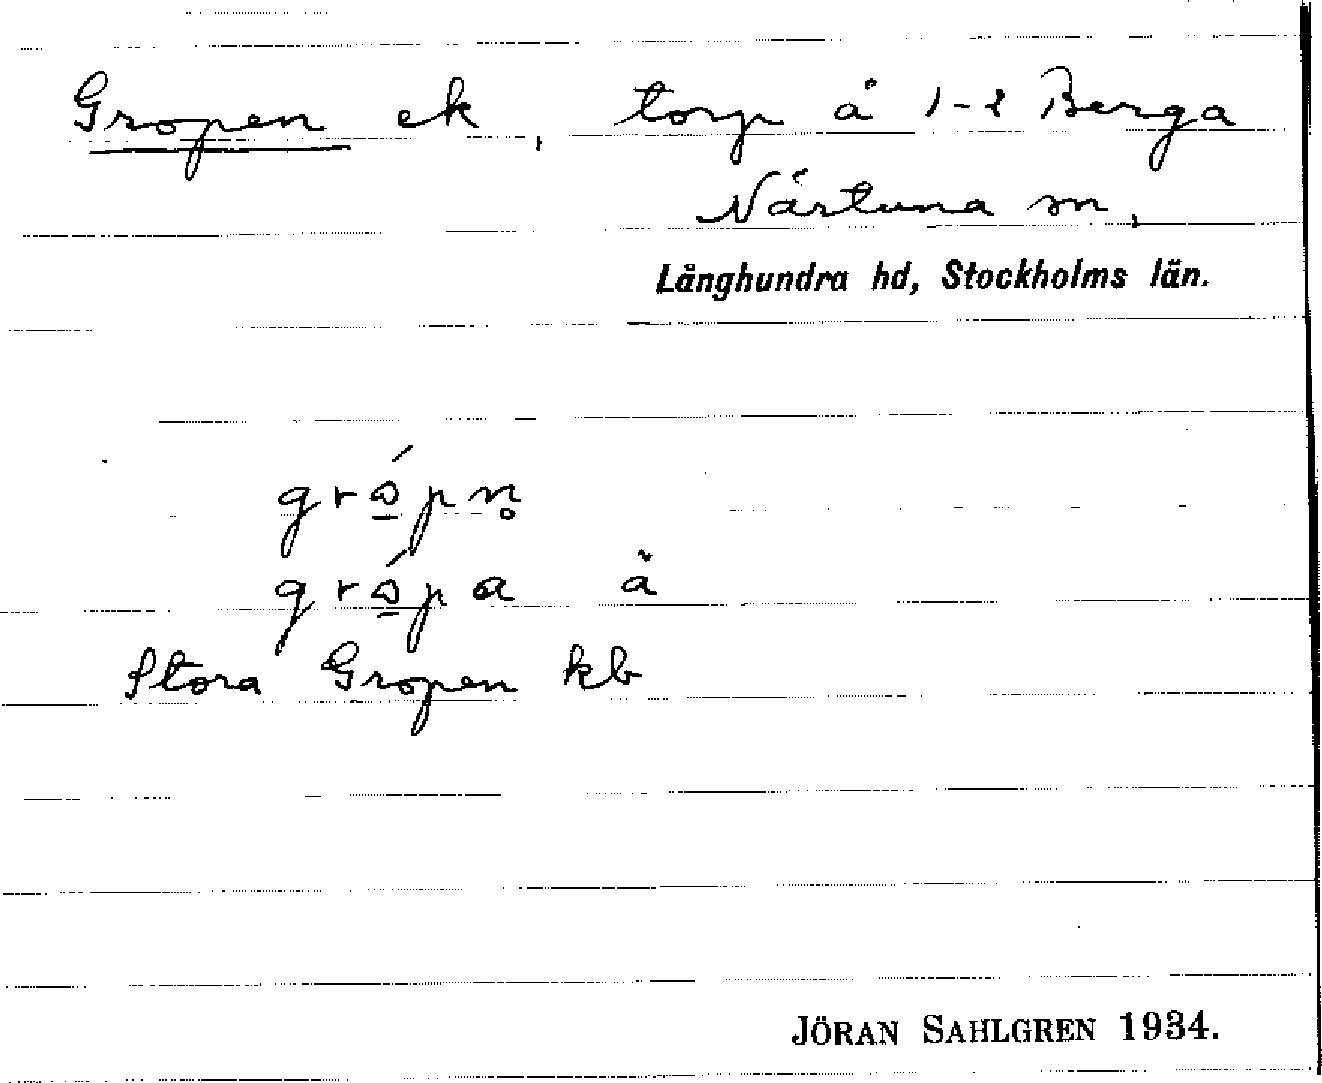 Gropen ek, torp å 1-2 Berga
Närtuna sn,
Långhundra hd, Stockholms län.
grɷ̲́pn̥
grɷ̲́pa å
Stora Gropen kb
JÖRAN SAHLGREN 1934.